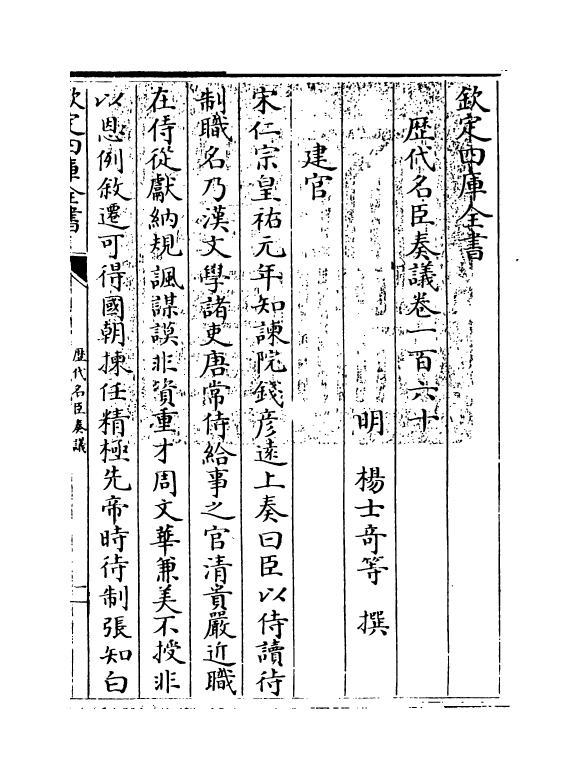 欽定四庫全書
歴代名臣奏議卷一百六十
明 楊士竒等 撰
建官
宋仁宗皇祐元年知諫院錢彦遠上奏曰臣以侍讀待
制職名乃漢文學諸吏唐常侍給事之官清貴嚴近職
在侍從獻納規諷謀謨非資重才周文華兼美不授非
以恩例敘遷可得國朝揀任精極先帝時待制張知白
欽定四庫全書
歴代名臣奏議